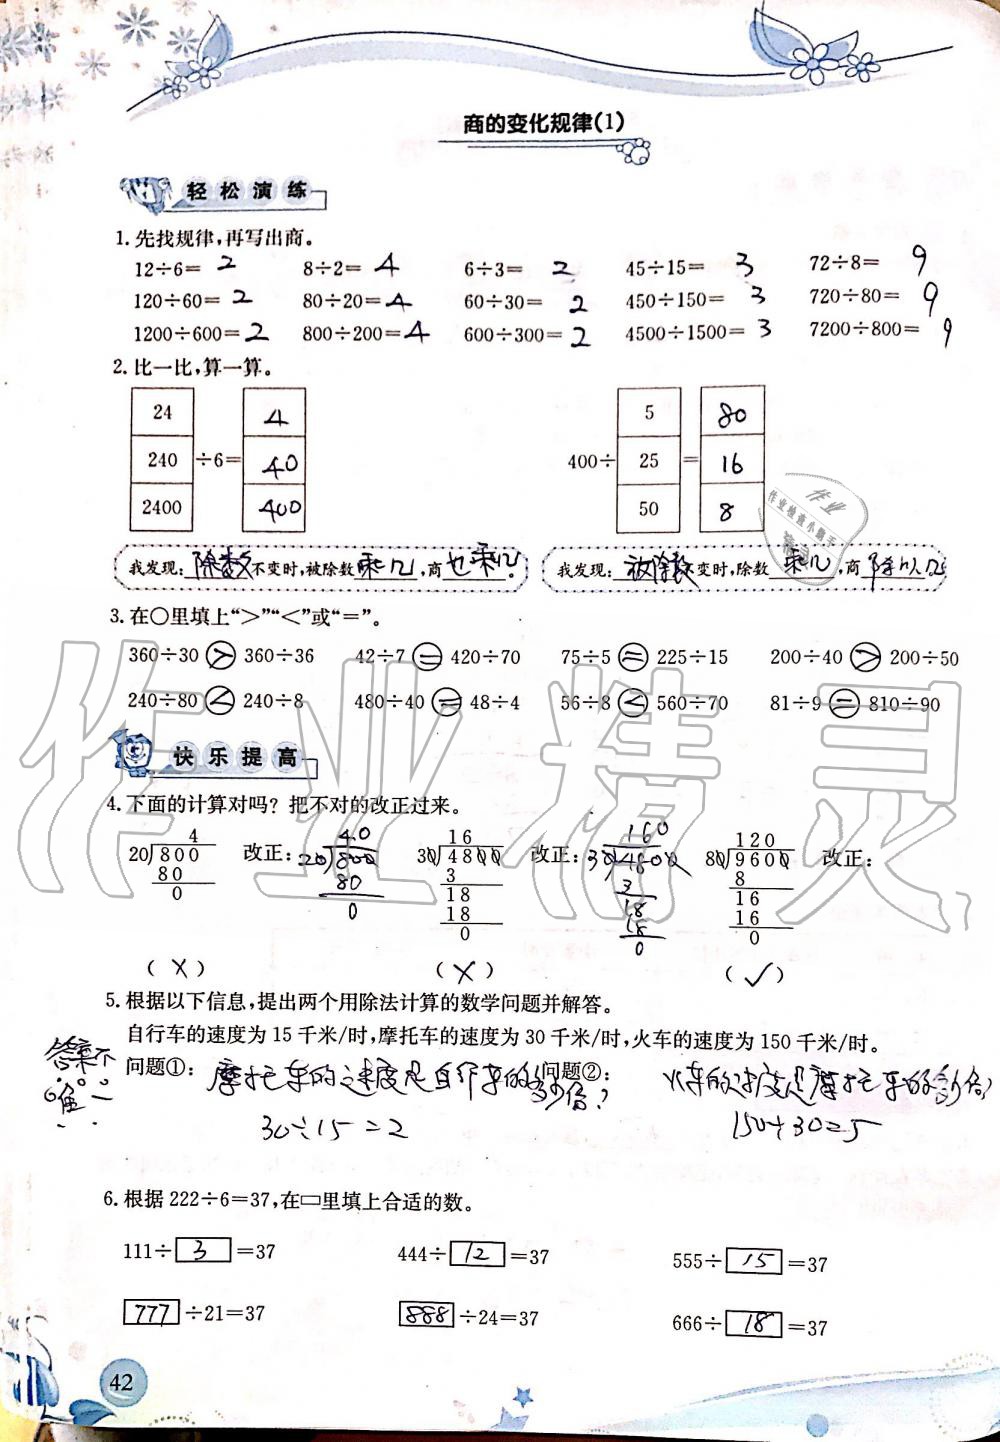 商的变化规律(1)
轻松演练
1.先找规律,再写出商。
12÷6= 2 8÷2= 4 6÷3= 2 45÷15= 3 72÷8= 9
120÷60= 2 80÷20= 4 60÷30= 2 450÷150= 3 720÷80= 9
1200÷600= 2 800÷200= 4 600÷300= 2 4500÷1500= 3 7200÷800= 9
2.比一比,算一算。
24 4 5 80
240 ÷6= 40 400÷ 25 = 16
2400 400 50 8
我发现: 除数 不变时,被除数 乘几 ,商 也乘几 。 我发现: 被除数 变时,除数 乘几 ,商 除以几
3.在○里填上“>”“<”或“=”。
360÷30 > 360÷36 42÷7 = 420÷70 75÷5 = 225÷15 200÷40 > 200÷50
240÷80 < 240÷8 480÷40 = 48÷4 56÷8 < 560÷70 81÷9 = 810÷90
快乐提高
4.下面的计算对吗?把不对的改正过来。
4 40 16 160 120
20 800 改正: 20 800 30 4800 改正: 30 4800 80 9600 改正:
80 80 3 3 8
0 0 18 18 16
18 18 16
0 0 0
(×) (×) (✓)
5.根据以下信息,提出两个用除法计算的数学问题并解答。
自行车的速度为15千米/时,摩托车的速度为30千米/时,火车的速度为150千米/时。
答案不唯一
问题①: 摩托车的速度是自行车的多少倍? 问题②: 火车的速度是摩托车的多少倍
30÷15=2 150÷30=5
6.根据222÷6=37,在▭里填上合适的数。
111÷ 3 =37 444÷ 12 =37 555÷ 15 =37
777 ÷21=37 888 ÷24=37 666÷ 18 =37
42
作业精灵
作业
作业检查小助手
精灵